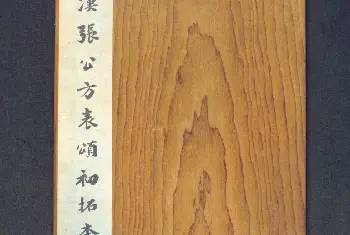 漢張公方表頌初拓本